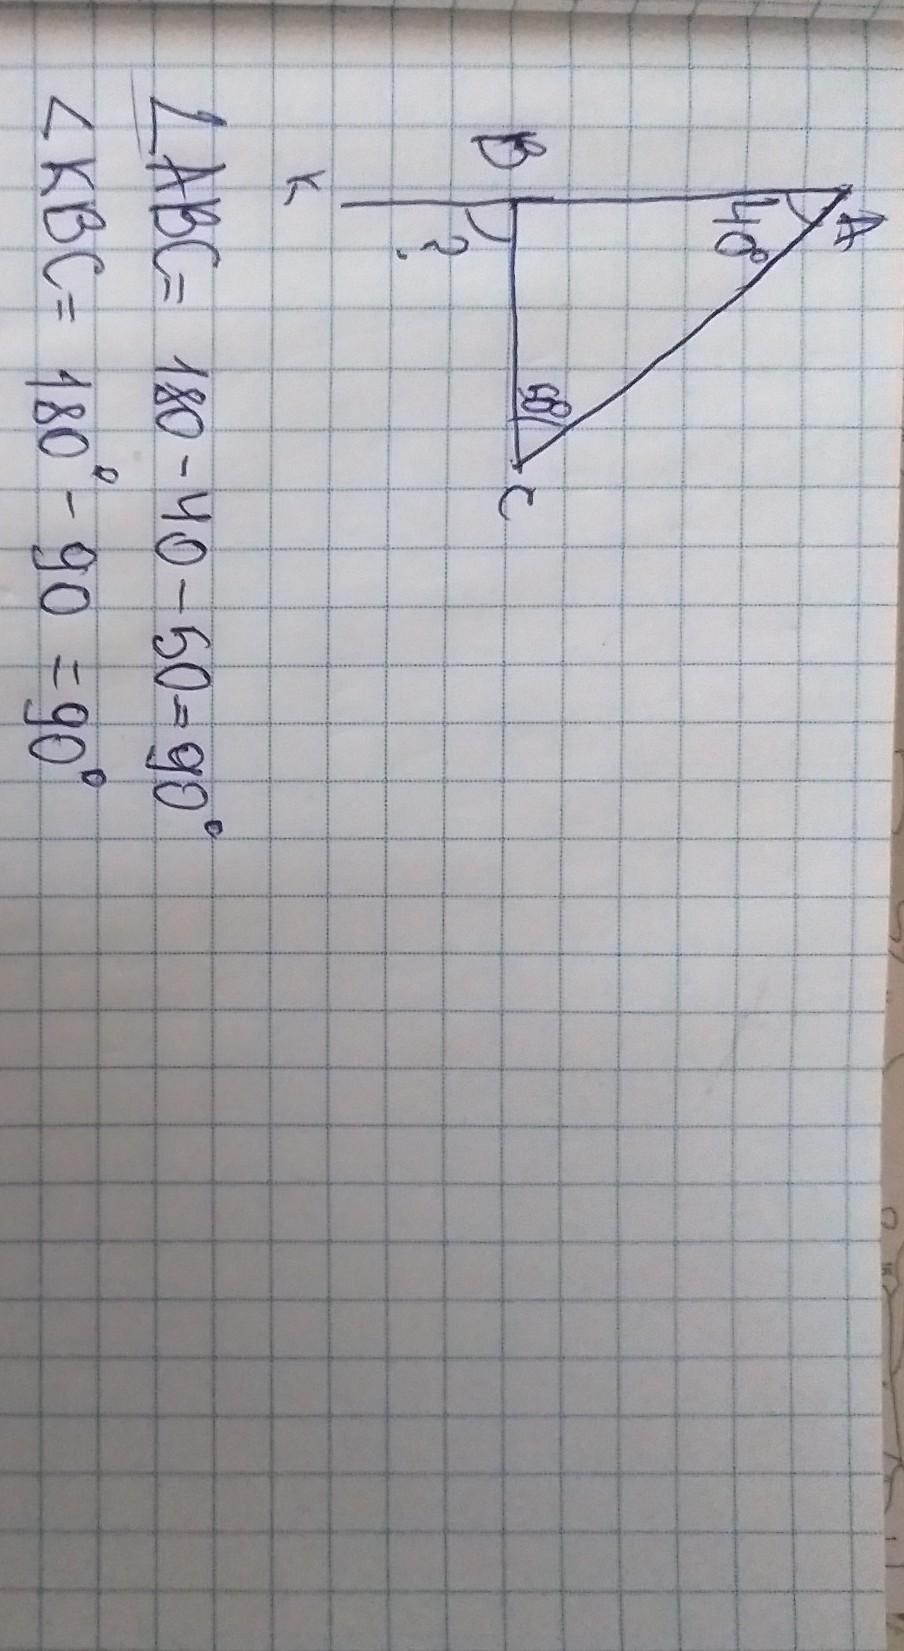 A
40°
B
50°
C
?
K
∠ABC = 180 - 40 - 50 = 90°
∠KBC = 180° - 90 = 90°